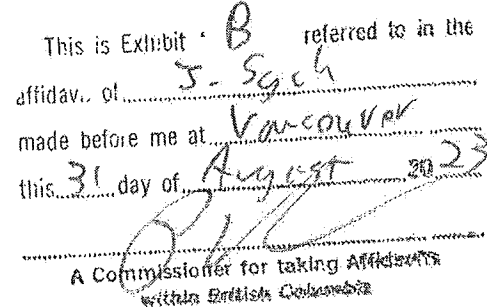 This is Exhibit "B referred to in the
affidavit of J. Sych
made before me at Vancouver
this 31 day of August 2023
A Commissioner for taking Affidavits
within British Columbia